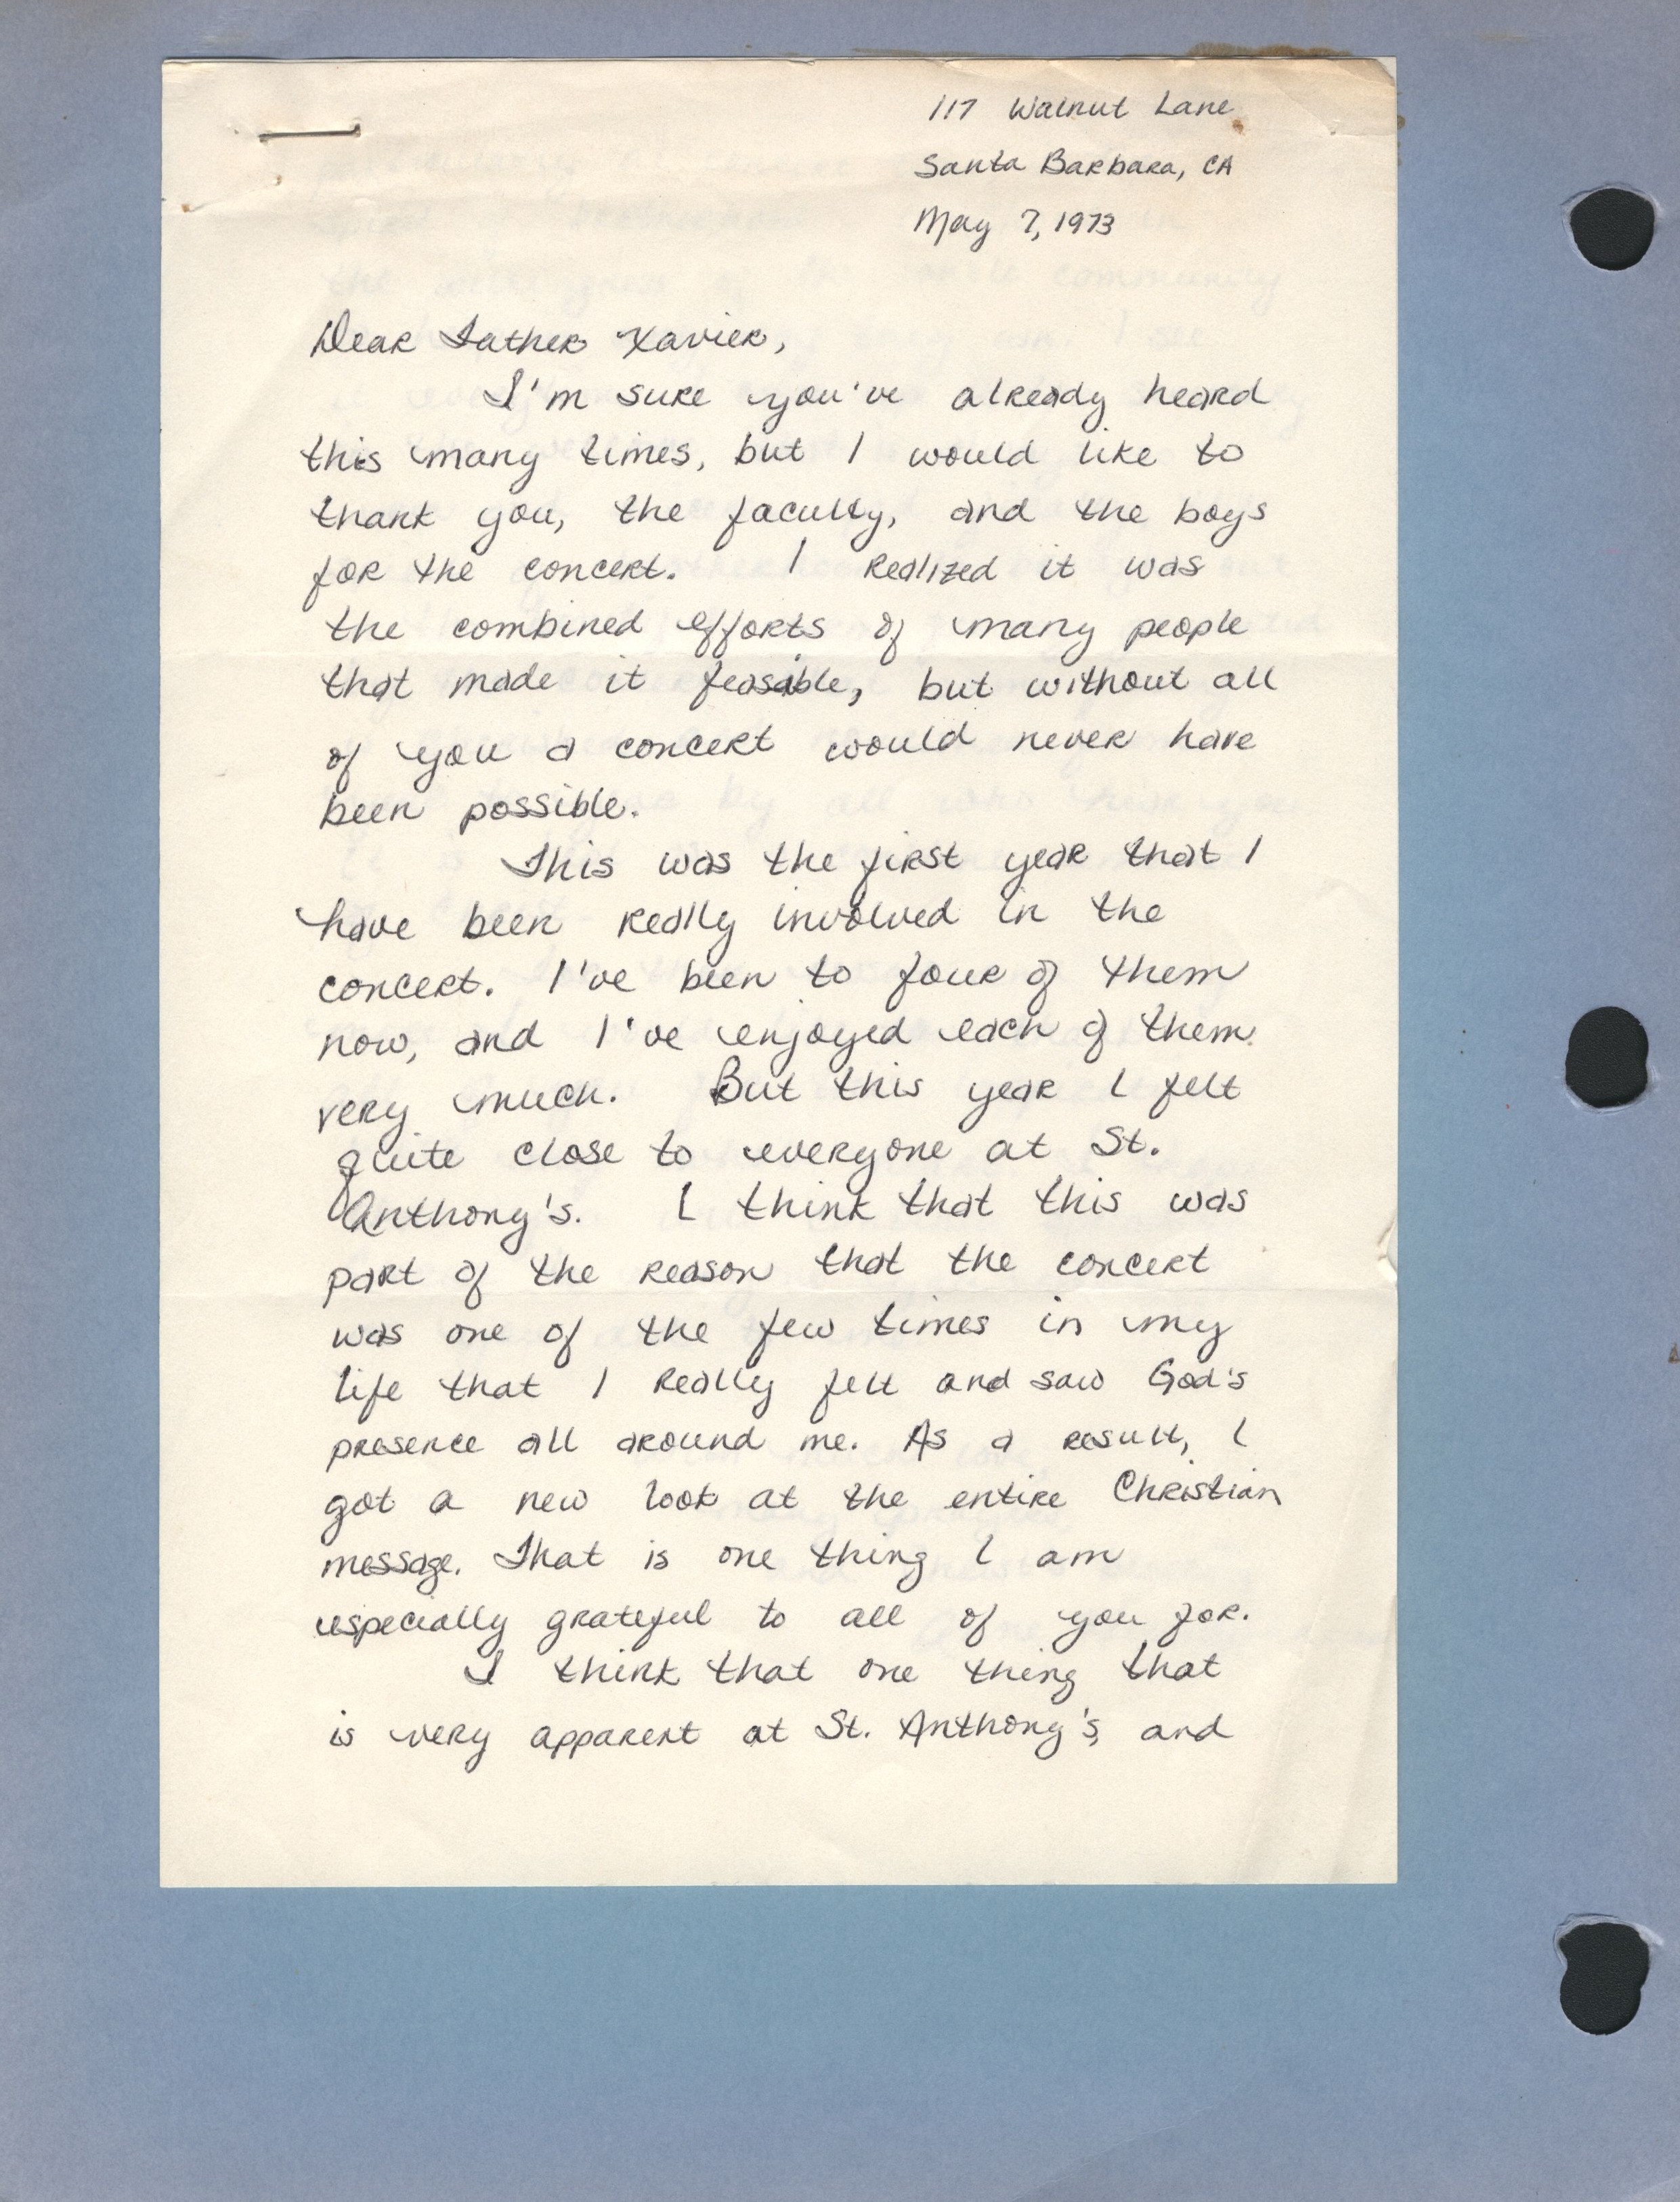 117 Walnut Lane
Santa Barbara, CA
May 7, 1973
Dear Father Xavier,
I'm sure you've already heard
this many times, but I would like to
thank you, the faculty, and the boys
for the concert. I realized it was
the combined efforts of many people
that made it feasible, but without all
of you a concert would never have
been possible.
This was the first year that I
have been really involved in the
concert. I've been to four of them
now, and I've enjoyed each of them
very much. But this year I felt
quite close to everyone at St.
Anthony's. I think that this was
part of the reason that the concert
was one of the few times in my
life that I really felt and saw God's
presence all around me. As a result, I
got a new look at the entire Christian
message. That is one thing I am
especially grateful to all of you for.
I think that one thing that
is very apparent at St. Anthony's, and